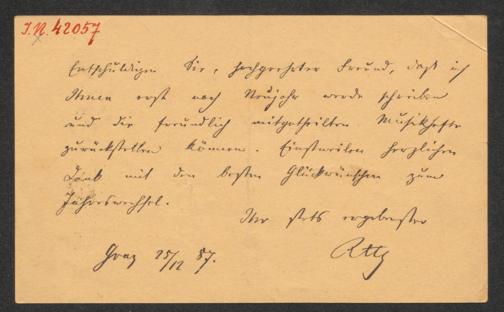 I.N. 42057
Entschuldigen Sie, hochgeehrter Freund, daß ich
Ihnen erst nach Neujahr werde schreiben
und die freundlich mitgetheilten Musikhefte
zurückstellen können. Einstweilen herzlichen
Dank mit den besten Glückwünschen zum
Jahreswechsel.
Ihr stets ergebenster
Graz 25/12 87.